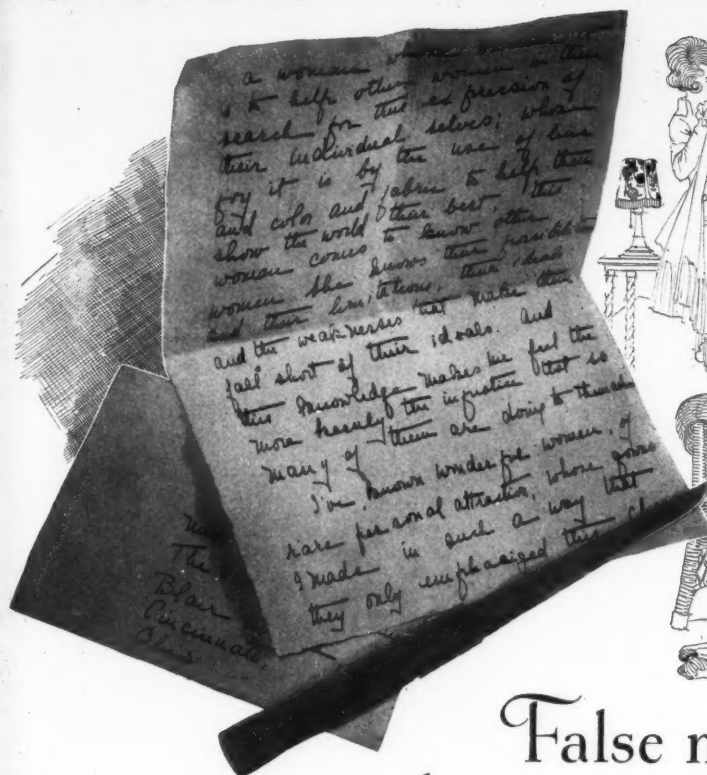 a woman whose
is to help other women in their
search for this expression of
their individual selves; whose
joy it is by the use of line
and color and fabric to help them
show the world their best, this
woman comes to know other
women She knows their
and their limitations, their ideals
and the weaknesses that make them
fall short of their ideals. And
this knowledge makes me feel the
more keenly the injustice that so
many of them are doing to
I've known wonderful women, of
rare personal attraction, whose gowns
I made in such a way that
they only emphasized
The
Blair
Cincinnati,
Ohio.
False